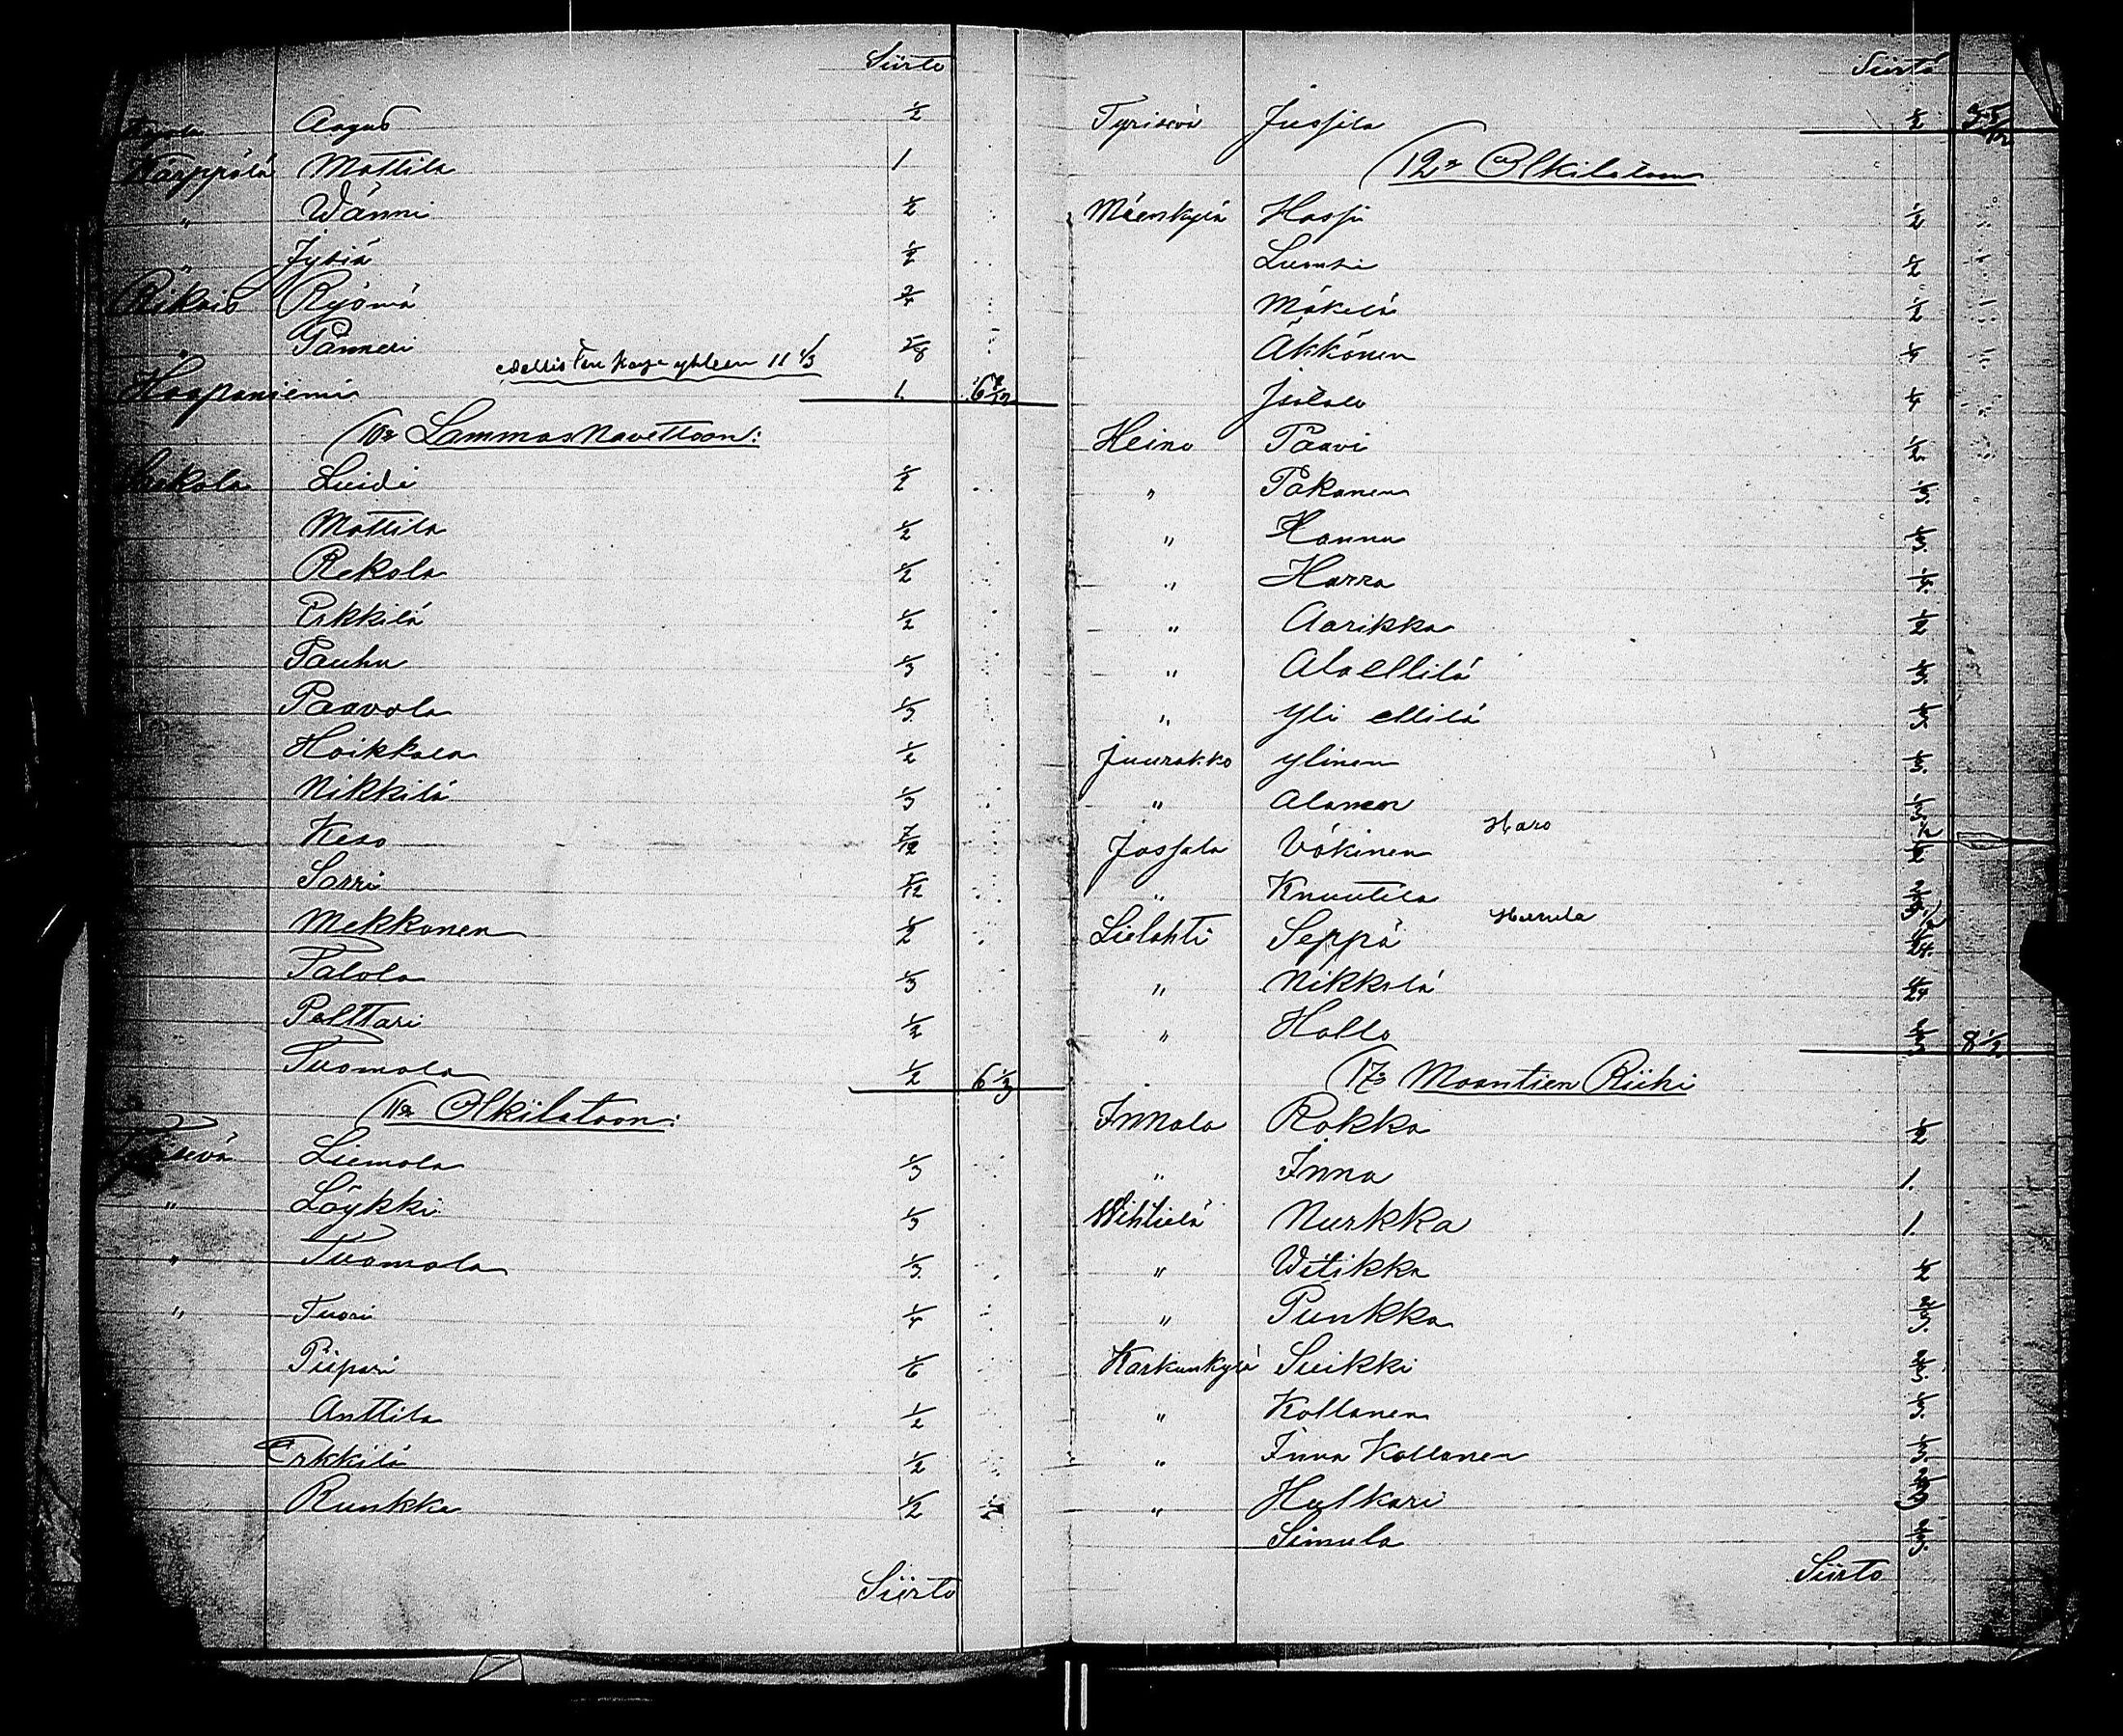 Siirto
Aagus 1/2
Kärppälä Mattila 1
" Wänni 1/2
" Jysiä 1/2
Rikais Ryömä 3/4
" Panneri 5/8
edellisten kaya yhteen 11 1/3
Haapaniemi 1. 6 7/12
10n Lammas Navettaan:
Luidi 1/2
Mattila 1/2
Rekola 1/2
Erkkilä 1/2
Pauhu 1/3
Paavola 1/3
Hoikkala 1/2
Nikkilä 1/3
Keso 7/12
Sarri 5/12
Mekkonen 1/2
Talola 1/3
Palttari 1/2
Tuomola 1/2 6 1/3
11n Olkilatoon:
Liemola 1/3
" Löykki 1/3
" Tuomola 1/3
" Tuori 1/4
Piipari 1/6
Anttila 1/2
Erkkilä 1/2
Runkka 1/2
Siirto
Siirto
Tyrisevä Jussila 1/2 3 5/12
12n Olkilatoon
Mäenkylä Hassi 1/2
Luonsi 1/2
Mäkelä 1/2
Äkkönen 1/4
Isotalo 1/4
Heino Paavi 1/2
" Pakanen 1/3
" Hannu 1/3
" Harra 1/3
" Aarikka 1/2
" Alaellilä 1/3
" Yli ellilä 1/3
Juurakko Ylinen 1/3
" Alanen 1/3
Haro
Jossala Väkinen
" Knuutila 2/3
Hurula
Lielahti Seppä
" Nikkilä 11/24
" Hollo 2/3 8 1/2
17n Maantien Riihi
Innala Rokka 1/2
" Inna 1.
Wihtielä Nurkka 1.
" Witikka 1/2
" Punkka 2/3
Karkunkylä Suikki 2/3
" Kollanen 1/3
" Inna Kollanen 1/3
" Hulkari
Simula 2/3
Siirto